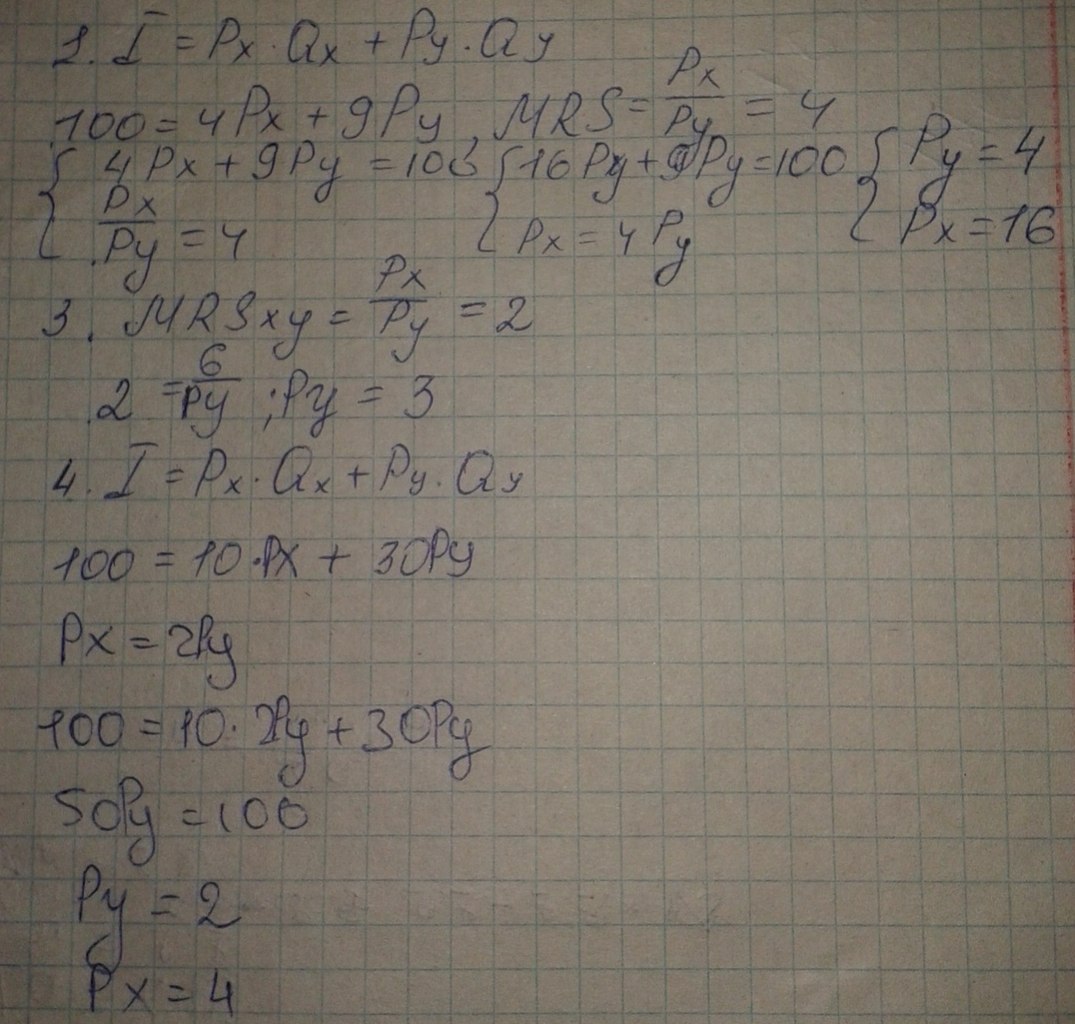 1. I = Px · Qx + Py · Qy
100 = 4Px + 9Py, MRS = Px/Py = 4
{ 4Px + 9Py = 100 { 16Py + 9Py = 100 { Py = 4
Px/Py = 4 Px = 4Py Px = 16
3. MRSxy = Px/Py = 2
2 = 6/Py ; Py = 3
4. I = Px · Qx + Py · Qy
100 = 10 · Px + 30Py
Px = 2Py
100 = 10 · 2Py + 30Py
50Py = 100
Py = 2
Px = 4